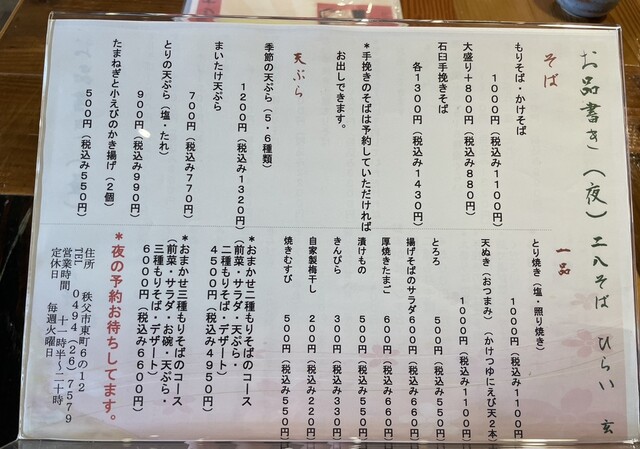 お品書き（夜）
エ八そば ひらい 玄
そば
もりそば・かけそば
1000円（税込み1100円）
大盛り＋800円（税込み880円）
石臼手挽きそば
各1300円（税込み1430円）
＊手挽きのそばは予約していただければ
お出しできます。
天ぷら
季節の天ぷら（5・6種類）
1200円（税込み1320円）
まいたけ天ぷら
700円（税込み770円）
とりの天ぷら（塩・たれ）
900円（税込み990円）
たまねぎと小えびのかき揚げ（2個）
500円（税込み550円）
一品
とり焼き（塩・照り焼き）
1000円（税込み1100円）
天ぬき（おつまみ）（かけつゆにえび天2本）
1000円（税込み1100円）
とろろ 500円（税込み550円）
揚げそばのサラダ 600円（税込み660円）
厚焼きたまご 600円（税込み660円）
漬けもの 500円（税込み550円）
きんぴら 300円（税込み330円）
自家製梅干し 200円（税込み220円）
焼きむすび 500円（税込み550円）
＊おまかせ二種もりそばのコース
（前菜・サラダ・天ぷら・
二種もりそば・デザート）
4500円（税込み4950円）
＊おまかせ三種もりそばのコース
（前菜・サラダ・お椀・天ぷら・
三種もりそば・デザート）
6000円（税込み6600円）
＊夜の予約お待ちしてます。
住所 秩父市東町6の12
TEL 0494（26）7579
営業時間 十一時半～二十時
定休日 毎週火曜日